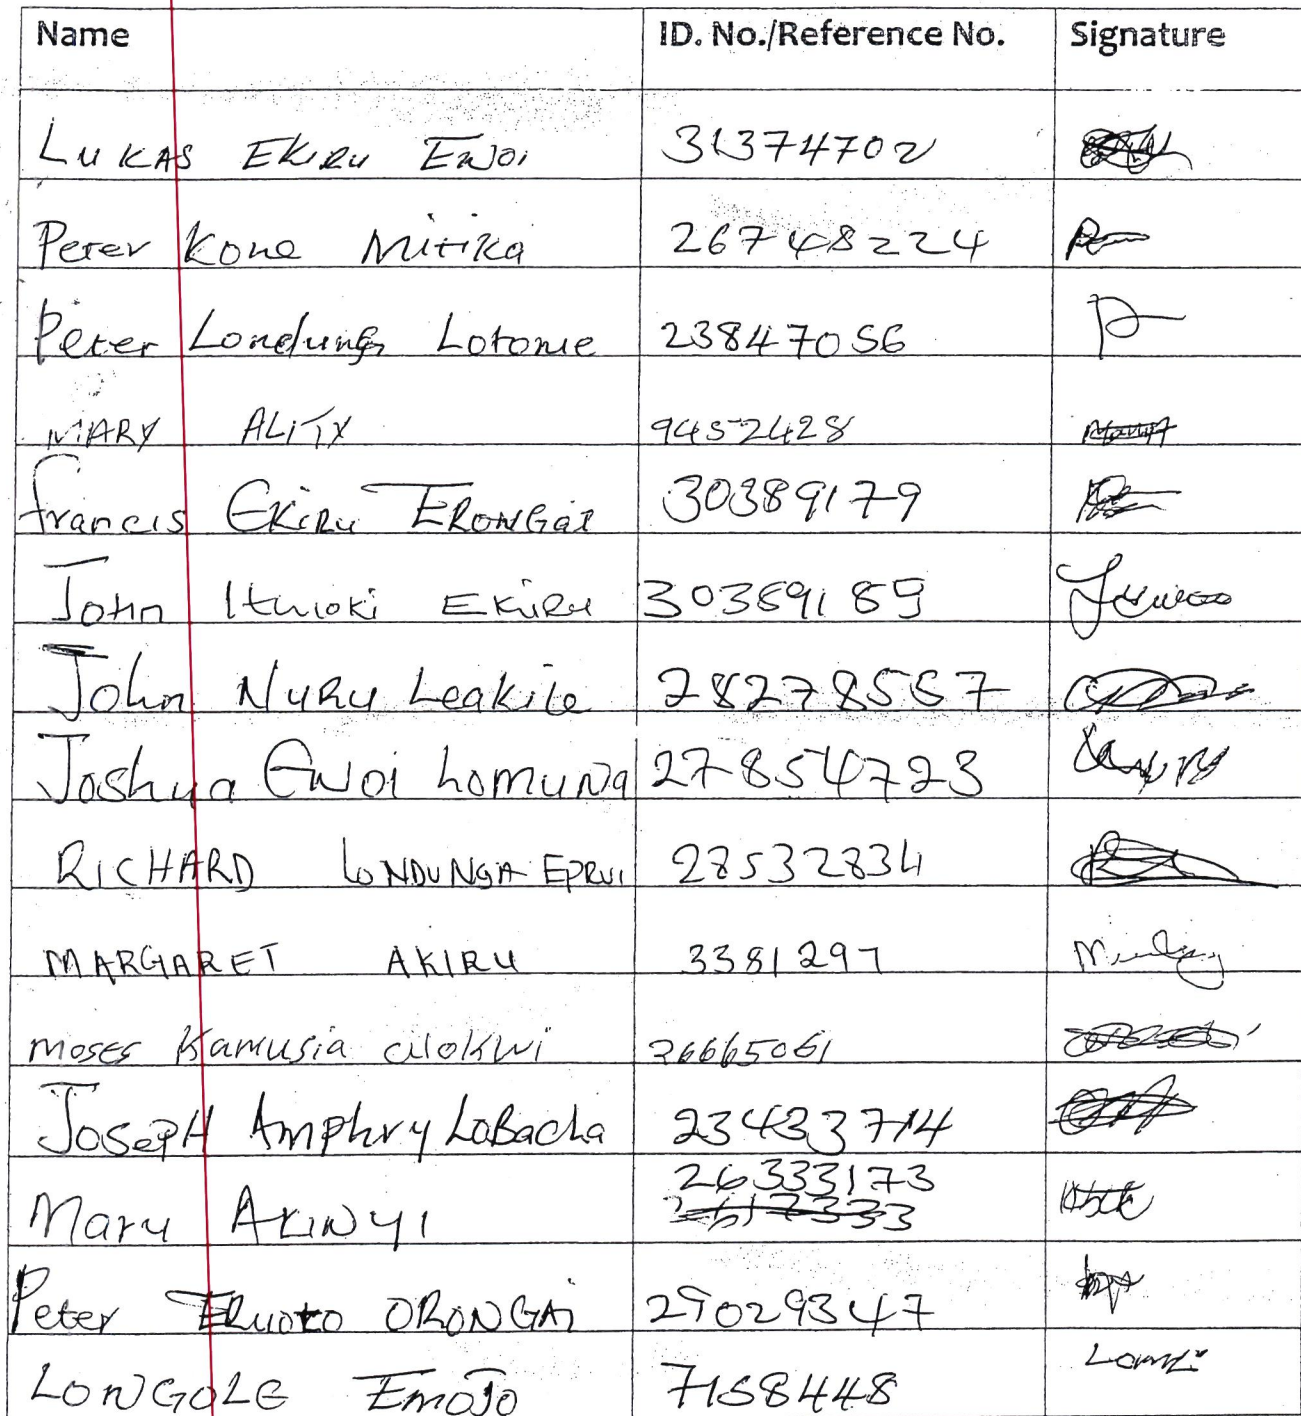 Name ID. No./Reference No. Signature
LUKAS EKIRU EWOI 31374702
Peter Kone Mitika 26748224
Peter Londunga Lotome 23847056
MARY ALITY 9452428
francis EKIRU ERONGAI 30389179
John Itwoki EKIRU 30389189
John NURU Leakile 28278557
Joshua Ewoi Lomuna 27854723
RICHARD LONDUNGA EPRUI 28532834
MARGARET AKIRU 3381297
moses Kamusia 26665061
JOSEPH Amphry LoBacha 23433714
26333173
Mary AKINYI
Peter ORONGAI 29029347
LONGOLE EMOJO 7158448